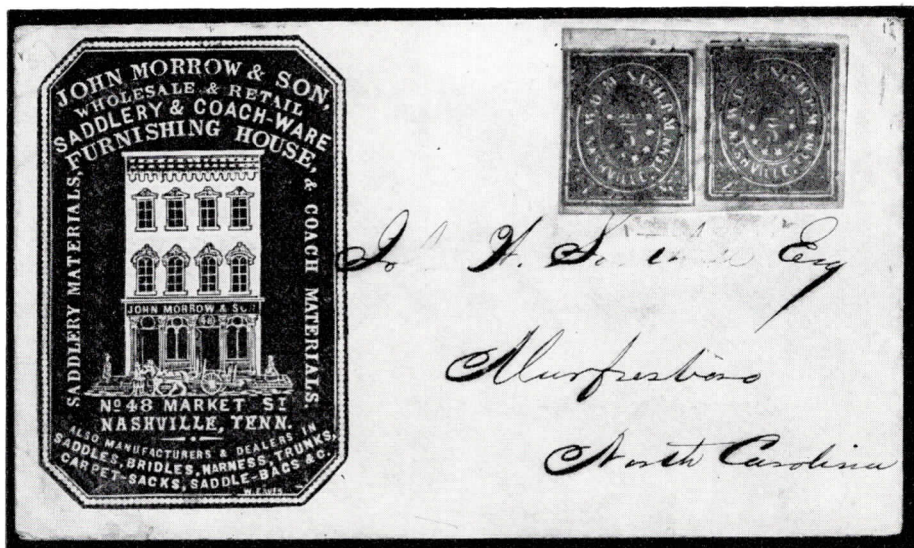 JOHN MORROW & SON,
WHOLESALE & RETAIL
SADDLERY & COACH-WARE
FURNISHING HOUSE,
SADDLERY MATERIALS,
& COACH MATERIALS.
JOHN MORROW & SON
48
No 48 MARKET ST
NASHVILLE, TENN.
ALSO MANUFACTURERS & DEALERS IN
SADDLES, BRIDLES, HARNESS, TRUNKS,
CARPET-SACKS, SADDLE-BAGS &C.
W. EAVES
NASHVILLE, TENN.
NASHVILLE, TENN.
H. Esq
Murfresboro
North Carolina